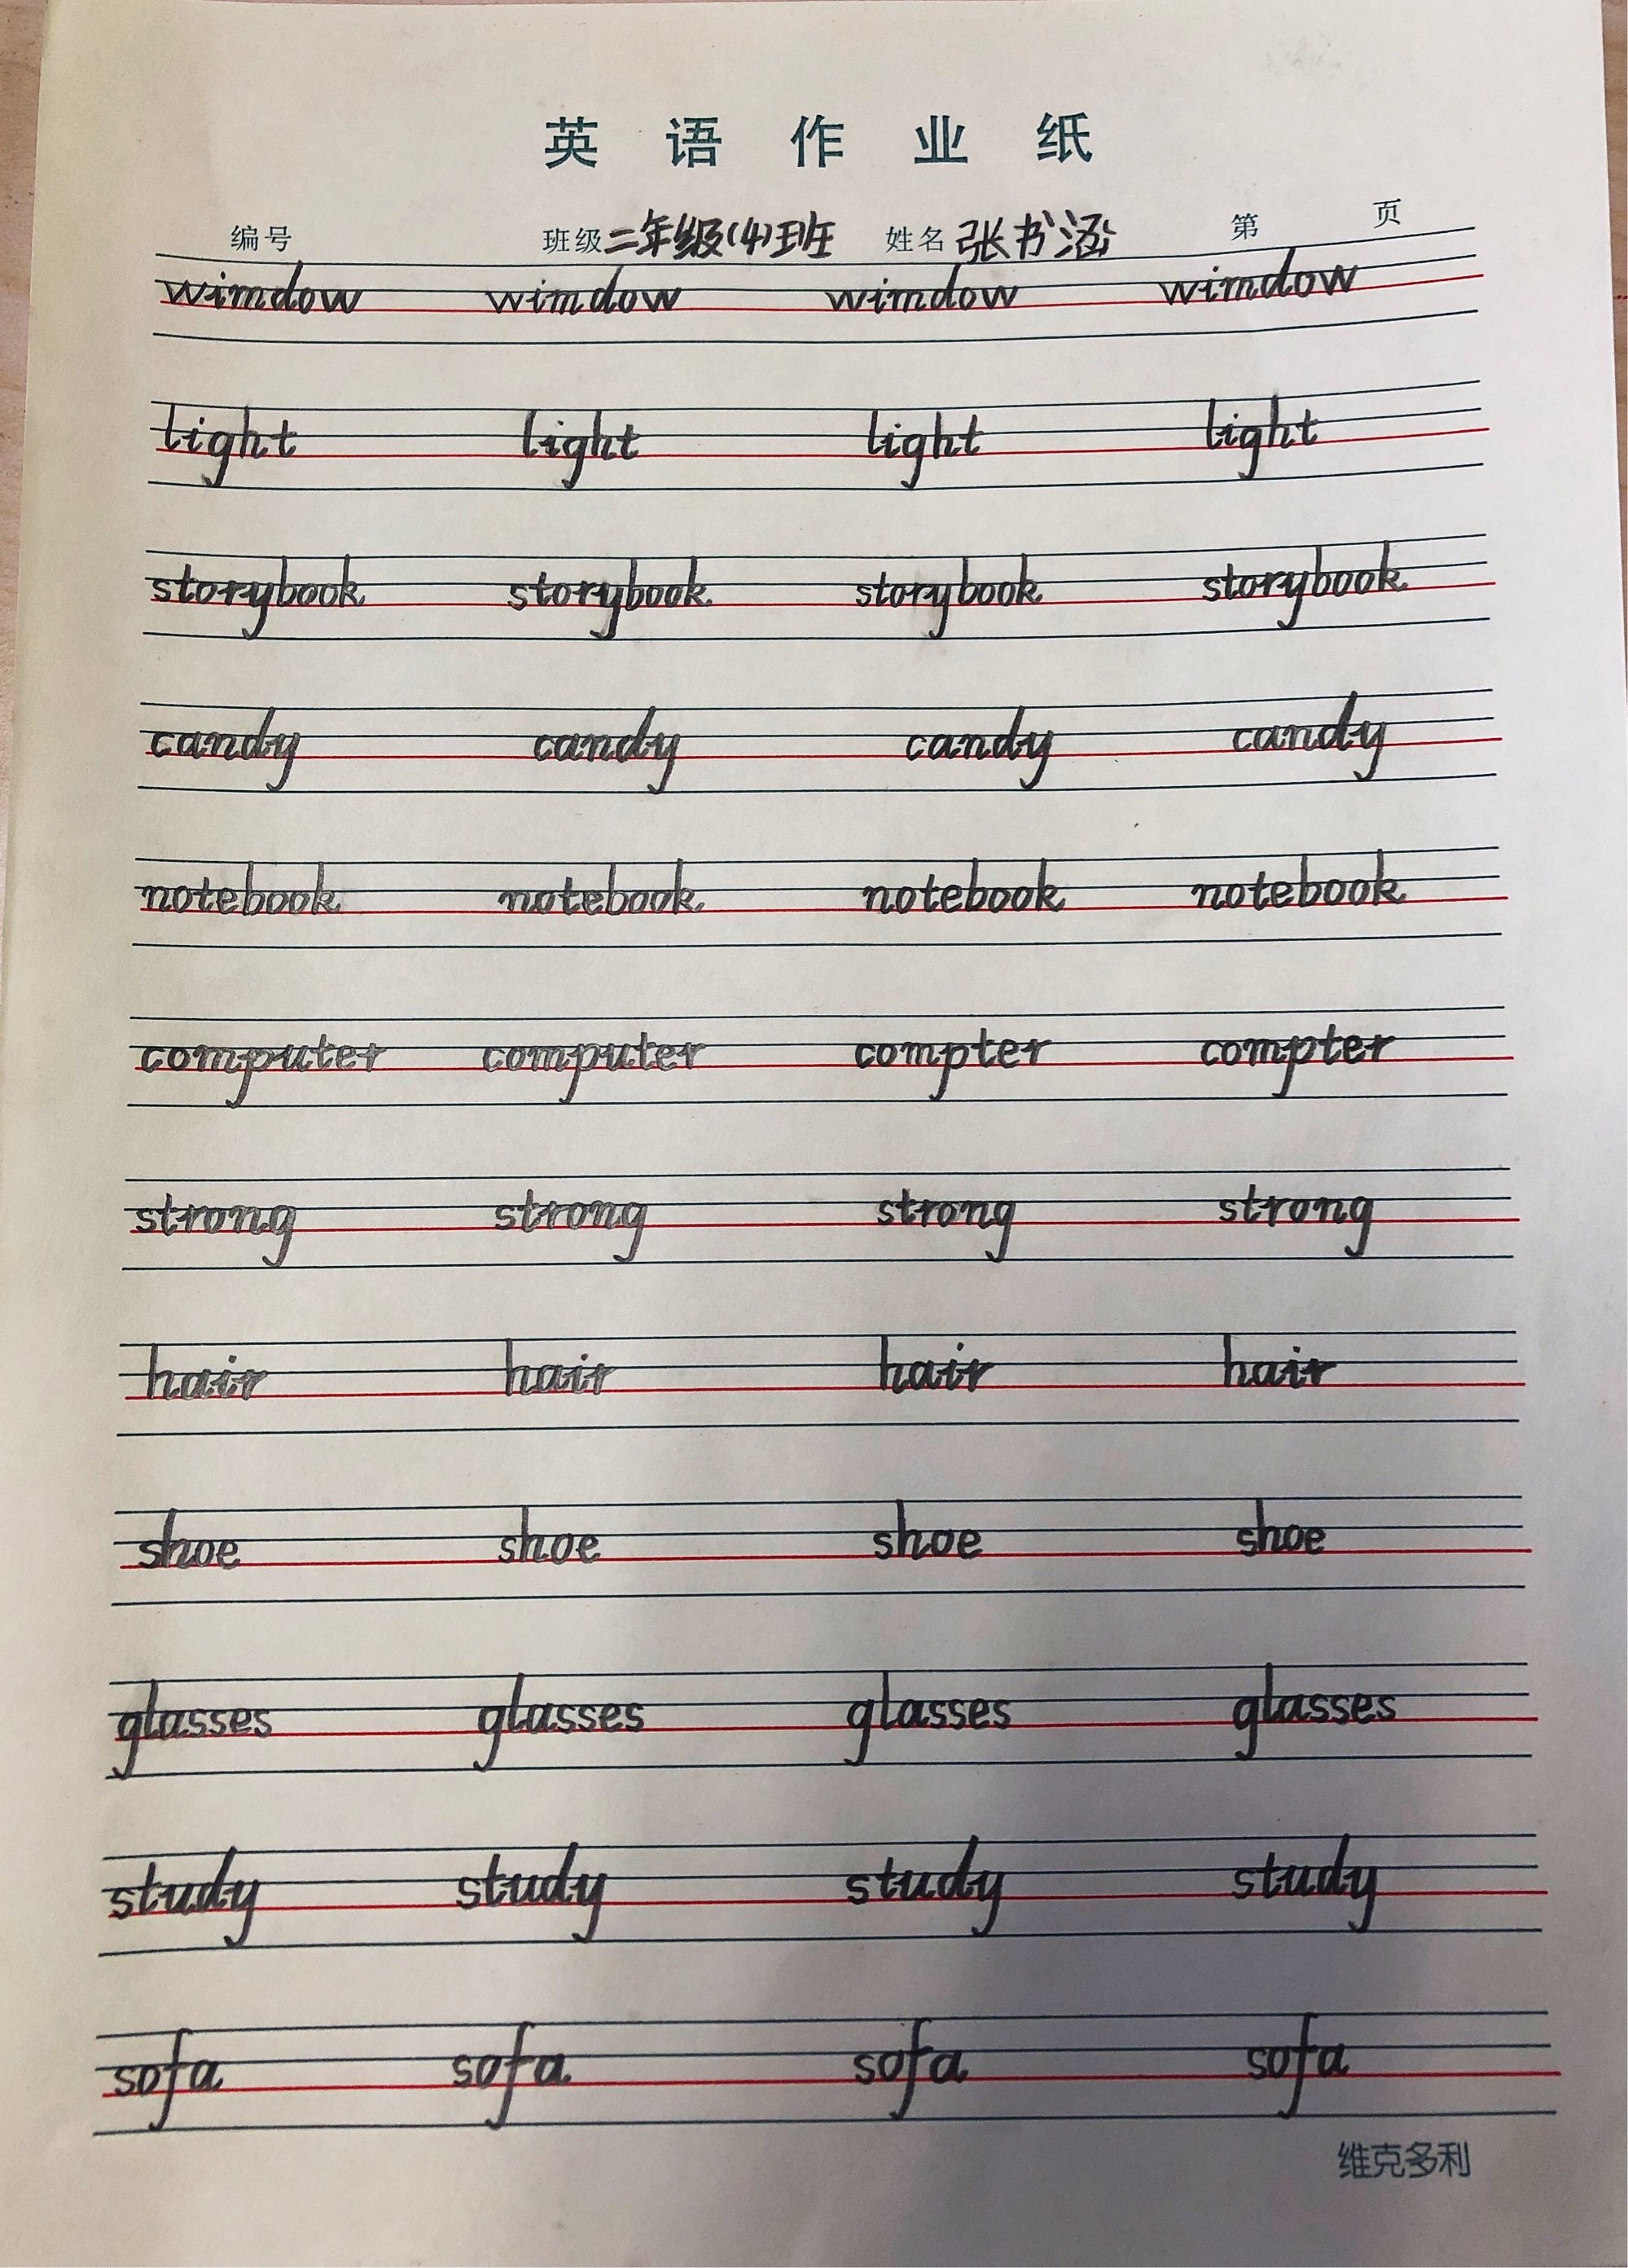 英语作业纸
编号 班级 二年级(4)班 姓名 张书涵 第 页
wimdow wimdow wimdow wimdow
light light light light
storybook storybook storybook storybook
candy candy candy candy
notebook notebook notebook notebook
computer computer compter compter
strong strong strong strong
hair hair hair hair
shoe shoe shoe shoe
glasses glasses glasses glasses
study study study study
sofa sofa sofa sofa
维克多利